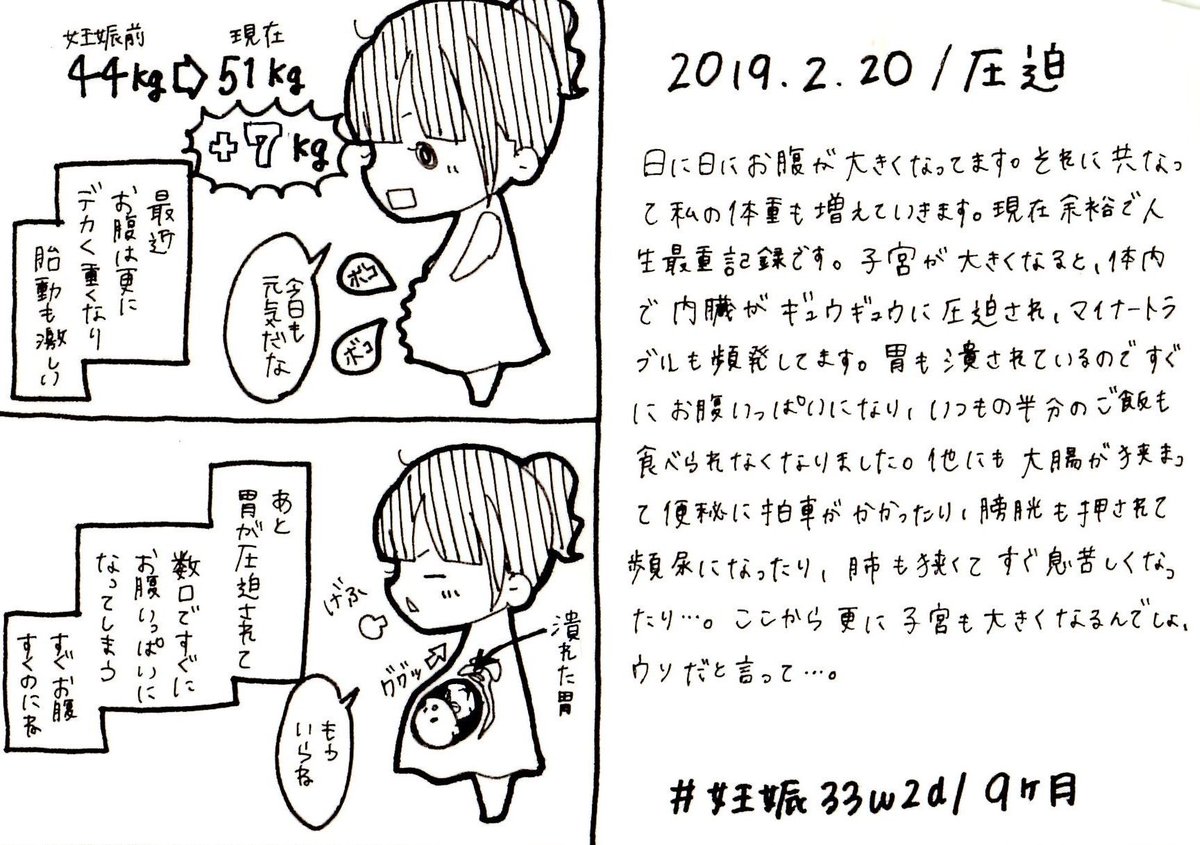 妊娠前
44kg⇨
現在
51kg
+7kg
最近
お腹は更に
デカく重くなり
胎動も激しい
ボコ
ボコ
今日も
元気だな
あと
胃が圧迫されて
数口ですぐに
お腹いっぱいに
なってしまう
すぐお腹
すくのにね
げふ
ググッ
潰れた胃
もう
いらね
2019.2.20/圧迫
日に日にお腹が大きくなってます。それに共なっ
て私の体重も増えていきます。現在余裕で人
生最重記録です。子宮が大きくなると、体内
で内臓がギュウギュウに圧迫され、マイナートラ
ブルも頻発してます。胃も潰されているのですぐ
にお腹いっぱいになり、いつもの半分のご飯も
食べられなくなりました。他にも大腸が狭まっ
て便秘に拍車がかかったり、膀胱も押されて
頻尿になったり、肺も狭くてすぐ息苦しくなっ
たり…。ここから更に子宮も大きくなるんでしょ、
ウソだと言って…。
#妊娠33w2d/9ヶ月